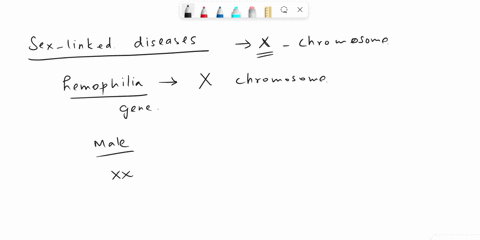 Sex-linked diseases → X - chromosome
hemophilia → X chromosome
gene.
Male
XX